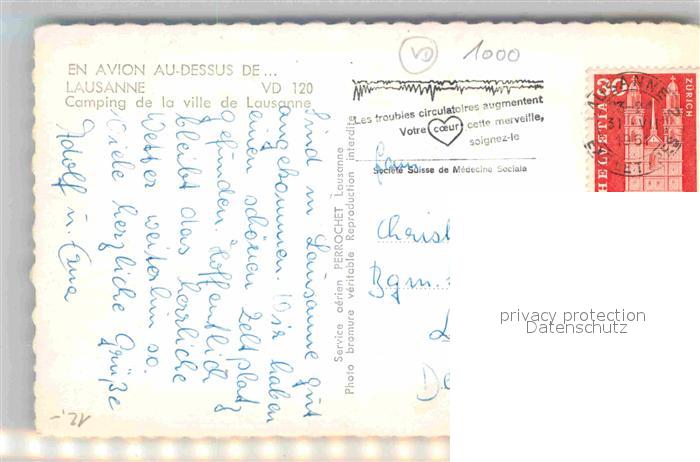 1000
VD
EN AVION AU-DESSUS DE...
LAUSANNE VD 120
Camping de la ville de Lausanne
Sind in Lausanne gut
angekommen. Wir haben
einen schönen Zeltplatz
gefunden. Hoffentlich
bleibt das herrliche
Wetter weiterhin so.
Viele herzliche Grüße
Adolf u. Erna
12.-
Service aérien PERROCHET Lausanne
Photo bromure véritable Reproduction interdite
Les troubles circulatoires augmentent
Votre cœur, cette merveille,
soignez-le
Société Suisse de Médecine Sociale
HELVETIA
30
ZÜRICH
LAUSANNE
Fam.
Christ
Bgm.
privacy protection
Datenschutz